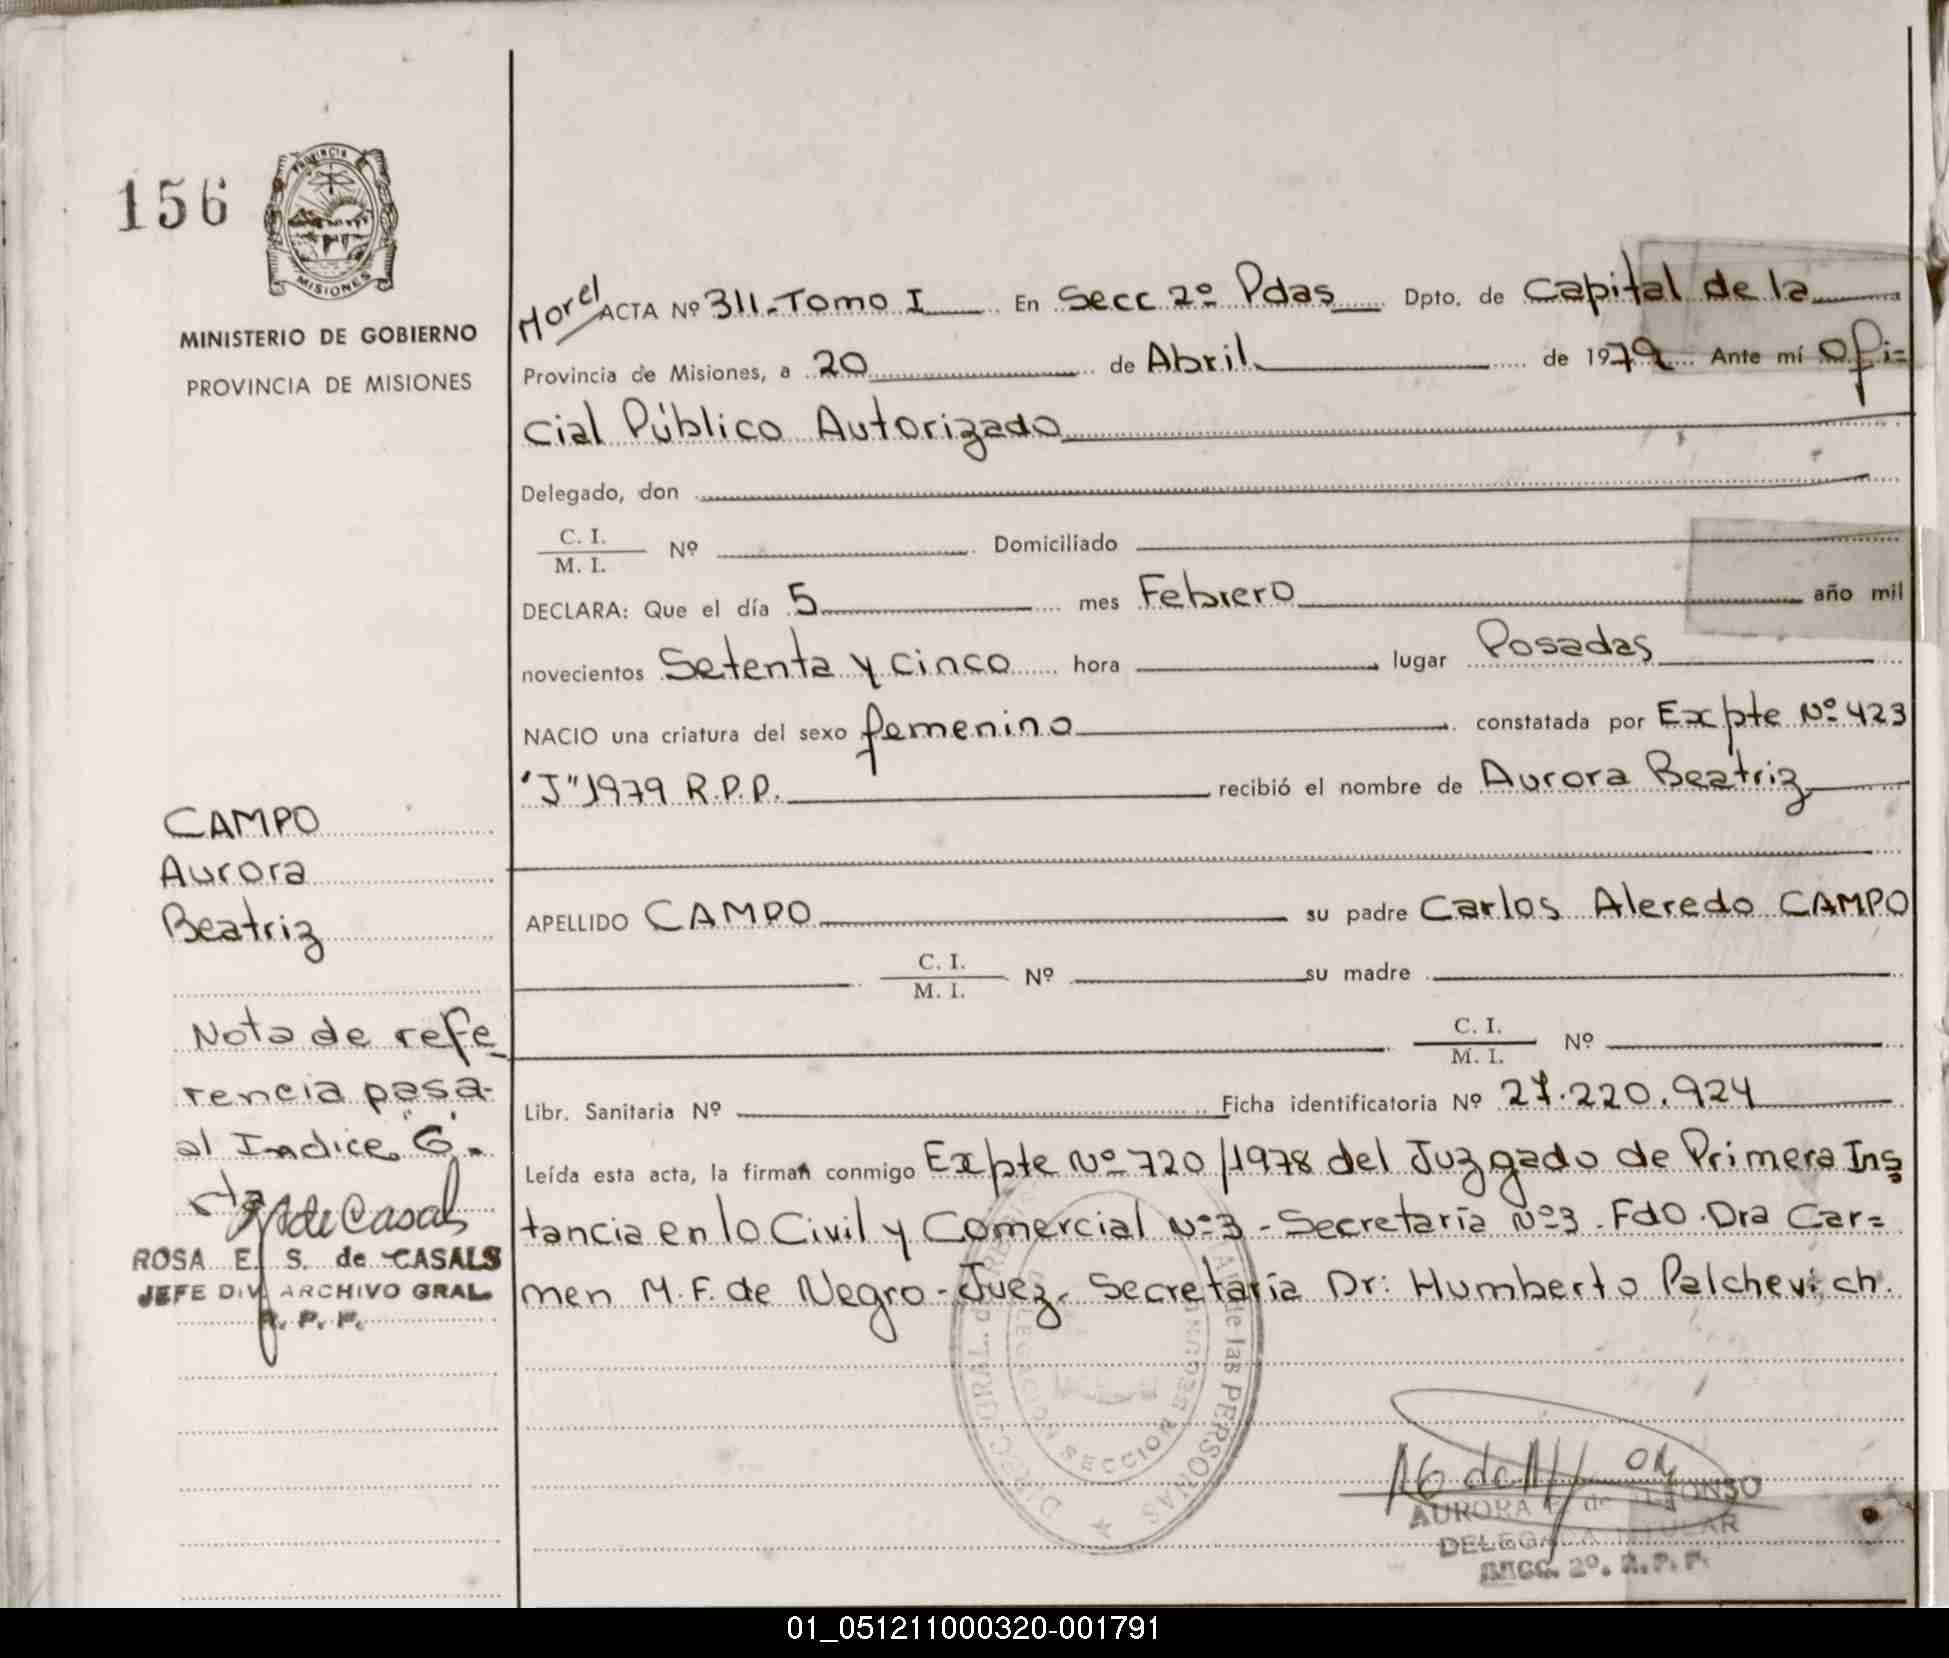 156
PROVINCIA
MISIONES
MINISTERIO DE GOBIERNO
PROVINCIA DE MISIONES
Morel ACTA Nº 311-Tomo I En Secc 2º Pdas Dpto. de Capital de la
Provincia de Misiones, a 20 de Abril de 1979 Ante mí Ofi=
cial Público Autorizado
Delegado, don
C. I.
M. I. Nº Domiciliado
DECLARA: Que el día 5 mes Febrero año mil
novecientos Setenta y cinco hora lugar Posadas
NACIO una criatura del sexo femenino constatada por Expte Nº 423
"J" 1979 R.P.P. recibió el nombre de Aurora Beatriz
CAMPO
Aurora
Beatriz
APELLIDO CAMPO su padre Carlos Aleredo CAMPO
C. I.
M. I. Nº su madre
C. I.
M. I. Nº
Nota de refe
rencia pasa
al Indice "G".
Libr. Sanitaria Nº Ficha identificatoria Nº 27.220.924
Leída esta acta, la firman conmigo Expte Nº 720/1978 del Juzgado de Primera Ins
tancia en lo Civil y Comercial Nº3 - Secretaría Nº3. Fdo. Dra Car=
men M. F. de Negro - Juez. Secretaría Dr: Humberto Palchevich.
de Casals
ROSA E. S. de CASALS
JEFE DIV. ARCHIVO GRAL.
R. P. P.
DIRECC. GRAL. de las PERSONAS
DELEGACION SECCION SEGUNDA
AURORA de ALFONSO
DELEGADA TITULAR
SECC. 2º. R. P. P.
01_051211000320-001791